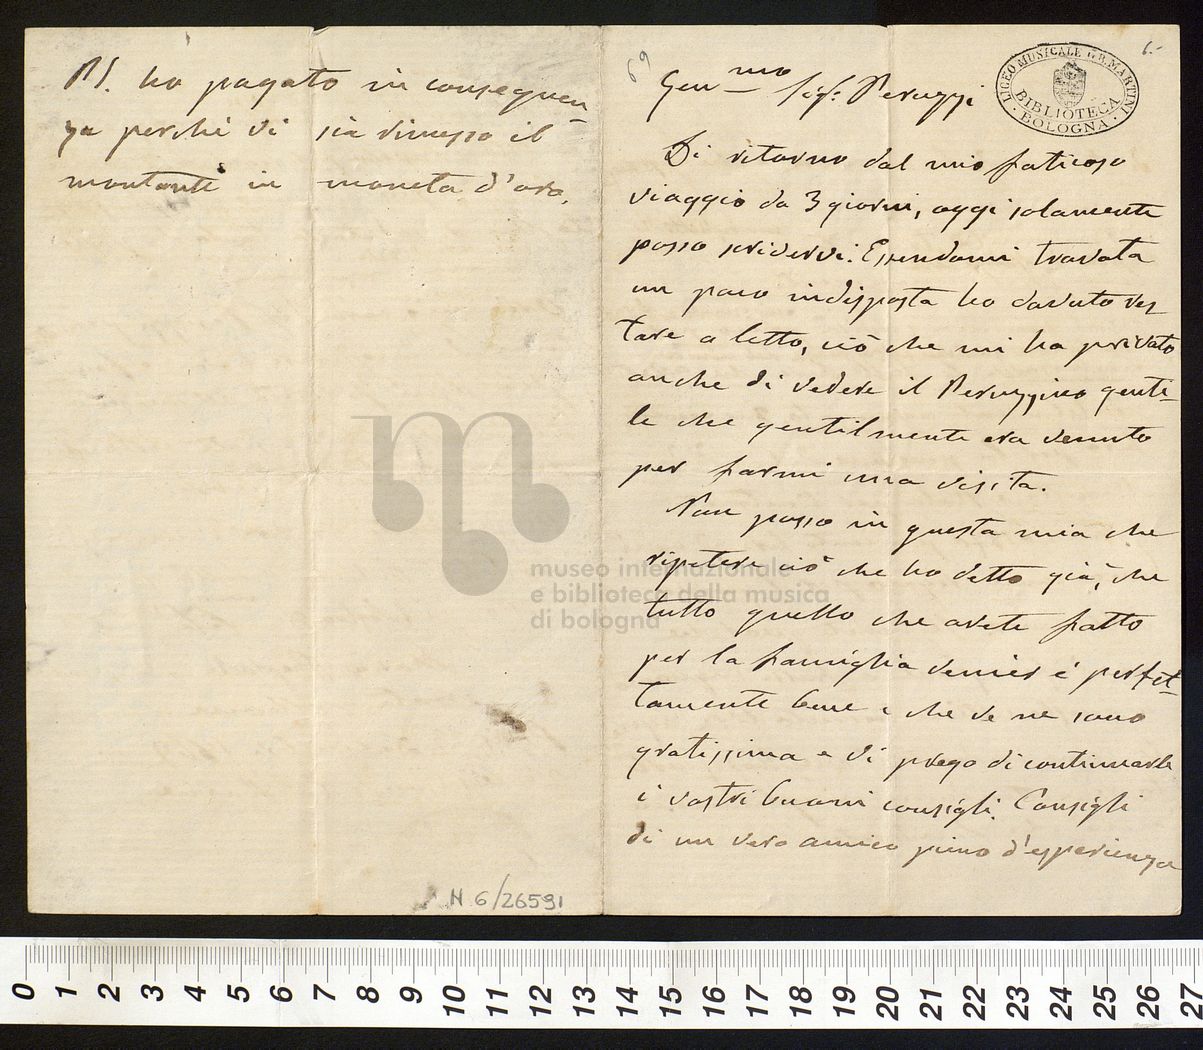 PS. ho pagato in conseguen
za perchè vi sia rimesso il
montante in moneta d'oro.
69
6.-
Gen.mo Sig: Peruzzi
LICEO MUSICALE G.B. MARTINI
BIBLIOTECA
BOLOGNA
Di ritorno dal mio faticoso
viaggio da 3 giorni, oggi solamente
posso scrivervi. Essendomi trovata
un poco indisposta ho dovuto res
tare a letto, ciò che mi ha privato
anche di vedere il Peruzzino genti-
le che gentilmente era venuto
per farmi una visita.
Non posso in questa mia che
ripetere ciò che ho detto già, che
tutto quello che avete fatto
per la famiglia Venier è perfet-
tamente bene e che ve ne sono
gratissima e vi prego di continuarle
i vostri buoni consigli. Consigli
di un vero amico pieno d'esperienza
museo internazionale
e biblioteca della musica
di bologna
N 6/26591
0 1 2 3 4 5 6 7 8 9 10 11 12 13 14 15 16 17 18 19 20 21 22 23 24 25 26 27